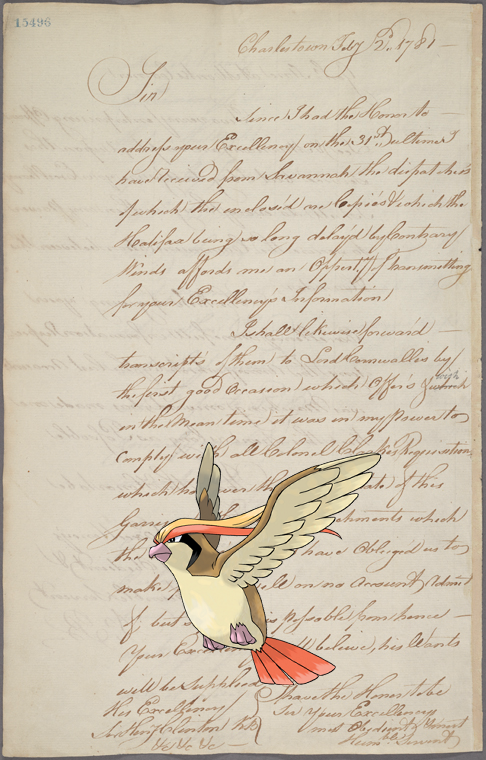 15496
Charlestown Feby 2d. 1781
Sir
Since I had the Honor to
address your Excellency on the 31st. Decr ultimo I
have received from Savannah the dispatches
of which the enclos'd are Copies & which the
Halifax being so long delay'd by Contrary
Winds affords me an Opport:ty of transmitting
for your Excellency's Information
I shall likewise forward
transcripts of them to Lord Cornwallis by
the first good occasion which Offers
in the Mean time it was in my Power to
comply with all Colonel Requisitions
which of this
which
the have Obliged us to
make on no Account admit
of but is possible from hence
Your believe, his Wants
will be Supplied
I have the Honor to be
His Excellency
Sir Your Excellency's
Sir Henry Clinton KB
most Obedient & 
&c &c &c
Humble Servant